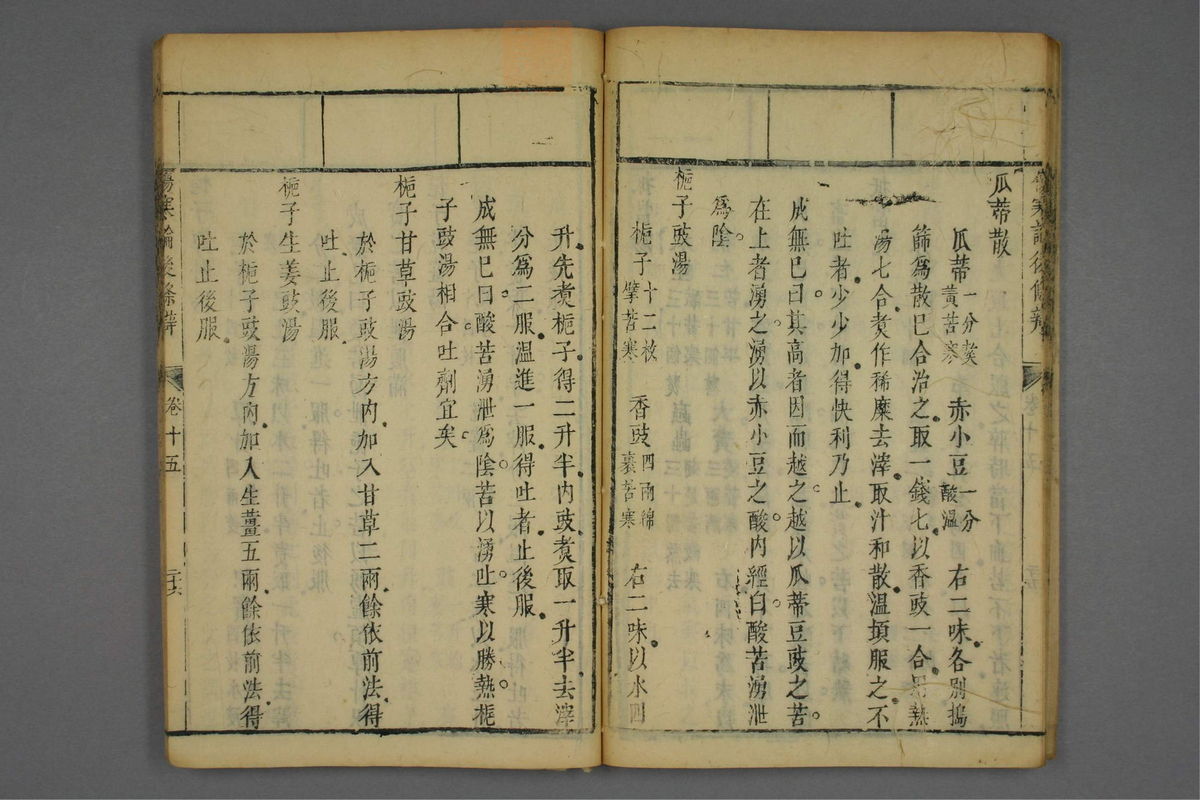 瓜蒂散
瓜蒂一分熬黃苦寒 赤小豆一分酸溫 右二味各別搗
篩爲散已合治之取一錢七以香豉一合用熱
湯七合煑作稀糜去滓取汁和散溫頓服之不
吐者少少加得快利乃止
成無巳曰其高者因而越之越以瓜蒂豆豉之苦
在上者湧之湧以赤小豆之酸內經曰酸苦湧泄
爲陰
梔子豉湯
梔子十二枚擘苦寒 香豉四兩綿裹苦寒 右二味以水四
升先煑梔子得二升半內豉煑取一升半去滓
分爲二服溫進一服得吐者止後服
成無巳曰酸苦湧泄爲陰苦以湧吐寒以勝熱梔
子豉湯相合吐劑宜矣
梔子甘草豉湯
於梔子豉湯方內加入甘草二兩餘依前法得
吐止後服
梔子生姜豉湯
於梔子豉湯方內加入生薑五兩餘依前法得
吐止後服
傷寒論後條辯 卷十五